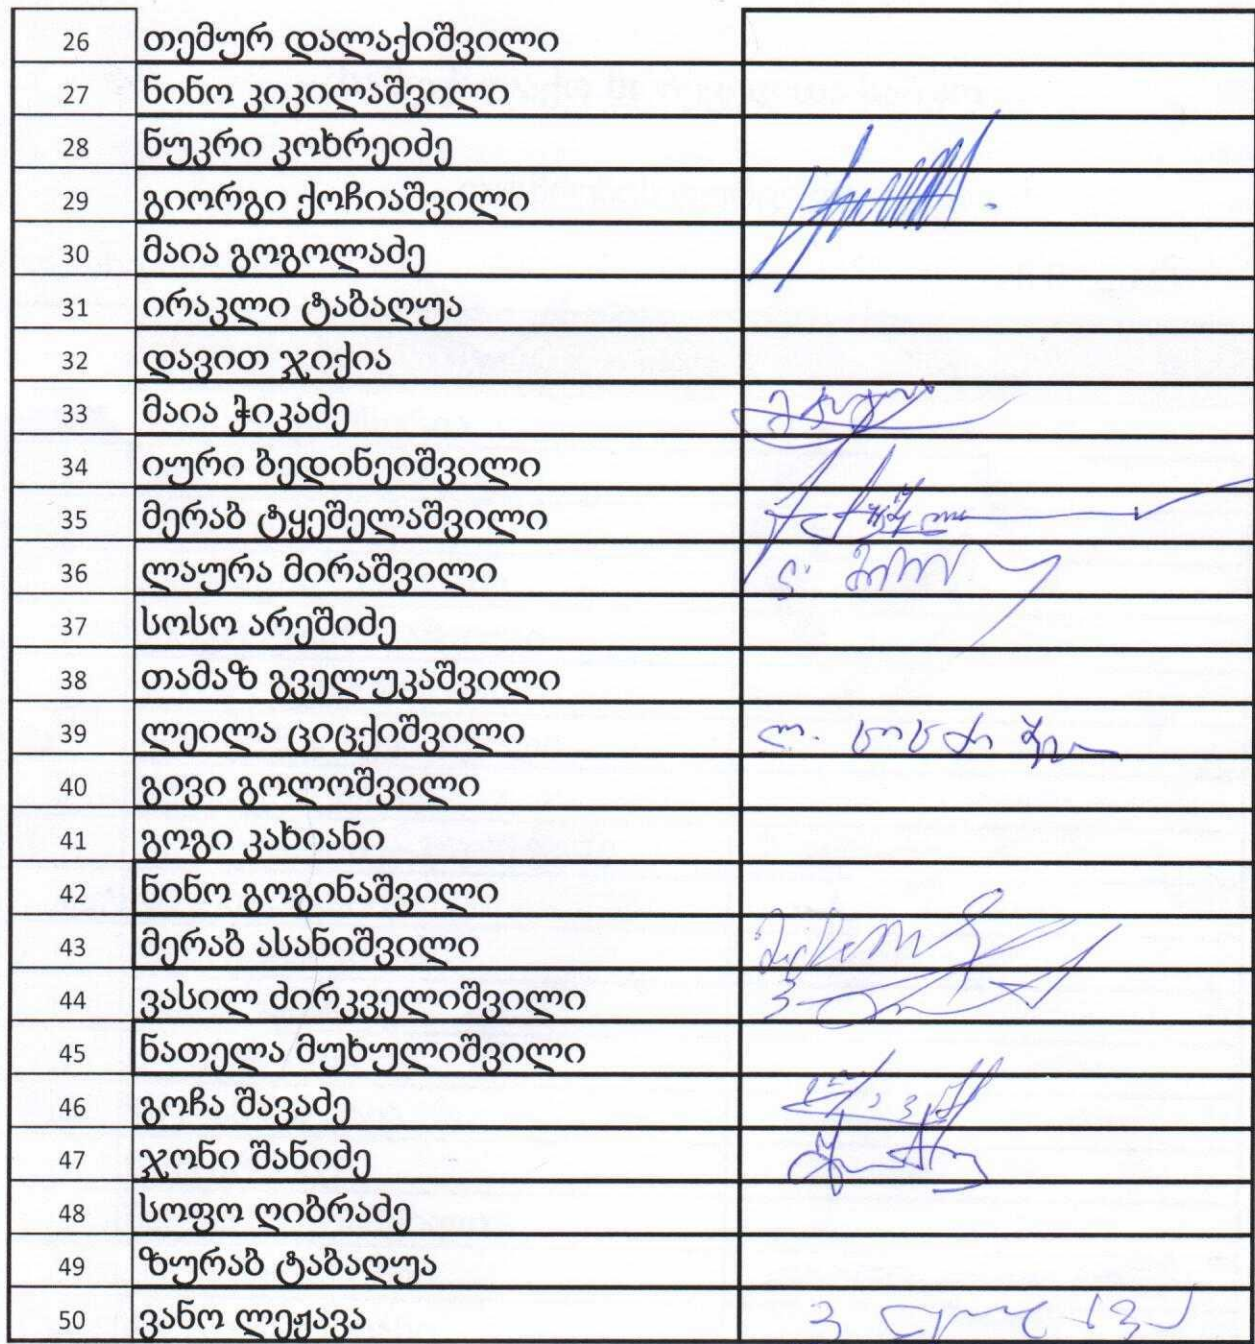 26 თემურ დალაქიშვილი
27 ნინო კიკილაშვილი
28 ნუკრი კოხრეიძე
29 გიორგი ქოჩიაშვილი
30 მაია გოგოლაძე
31 ირაკლი ტაბაღუა
32 დავით ჯიქია
33 მაია ჭიკაძე
34 იური ბედინეიშვილი
35 მერაბ ტყეშელაშვილი
36 ლაურა მირაშვილი
37 სოსო არეშიძე
38 თამაზ გველუკაშვილი
39 ლეილა ციცქიშვილი
40 გივი გოლოშვილი
41 გოგი კახიანი
42 ნინო გოგინაშვილი
43 მერაბ ასანიშვილი
44 ვასილ ძირკველიშვილი
45 ნათელა მუხულიშვილი
46 გოჩა შავაძე
47 ჯონი შანიძე
48 სოფო ღიბრაძე
49 ზურაბ ტაბაღუა
50 ვანო ლეჟავა